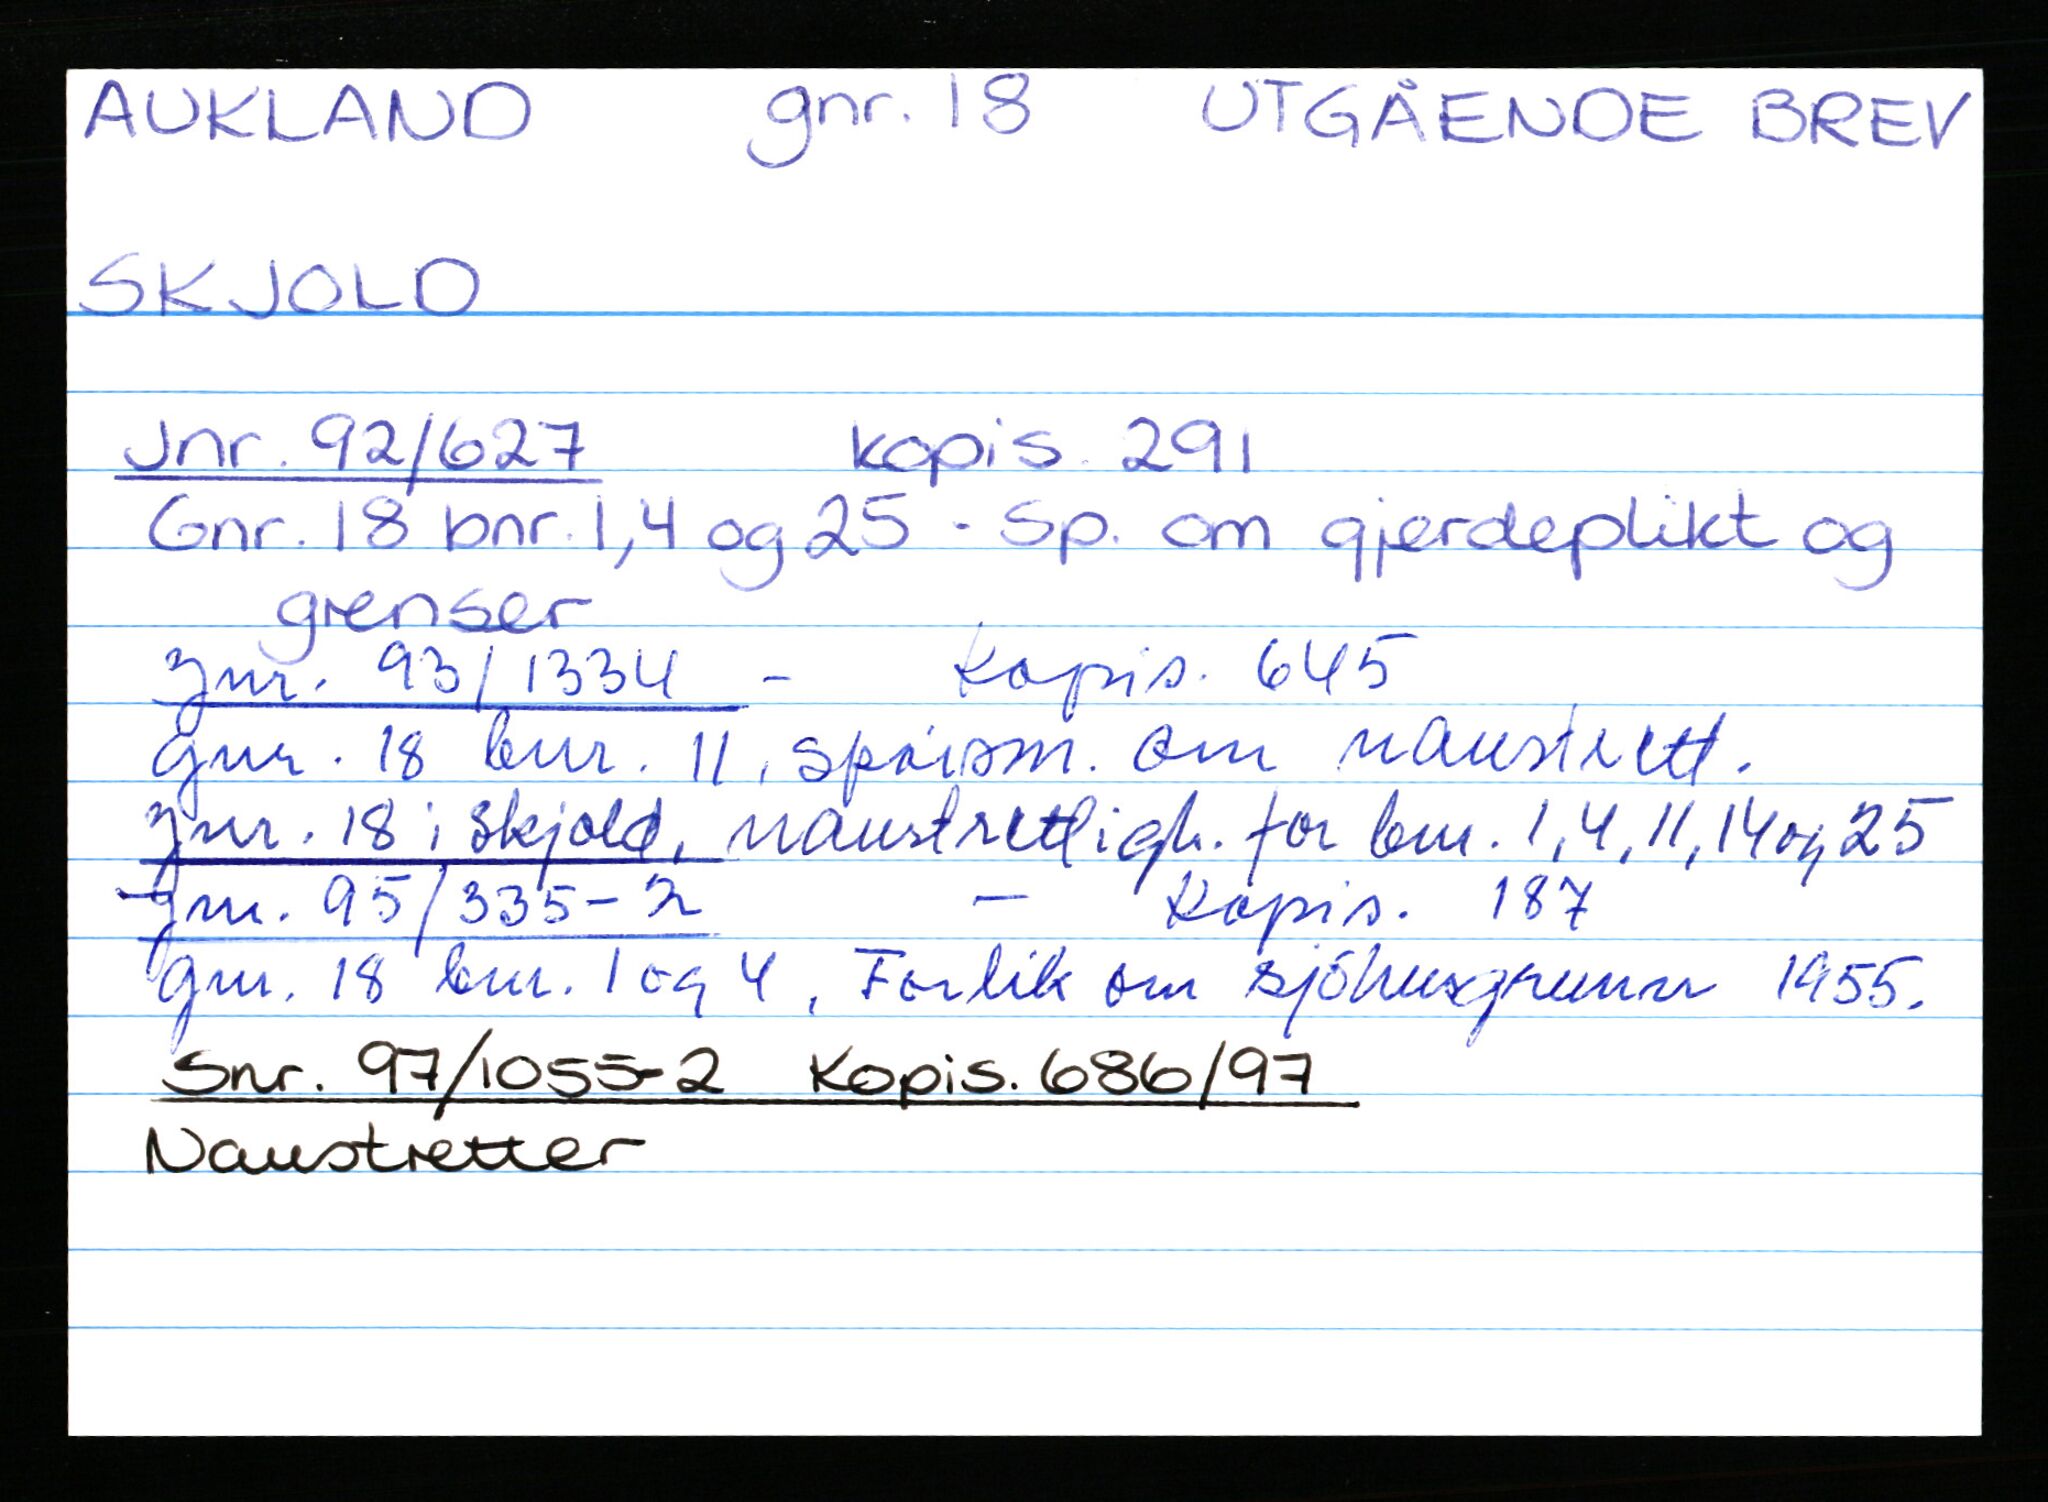 AUKLAND gnr. 18 UTGÅENDE BREV
SKJOLD
Jnr. 92/627 kopis. 291
Gnr. 18 bnr. 1,4 og 25 - Sp. om gjerdeplikt og
grenser
Jnr. 93/1334 - Kopis. 645
gnr. 18 bnr. 11, spørsm. om naustrett.
gnr. 18 i Skjold, naustrettigh. for bnr. 1,4,11,14 og 25
Jnr. 95/335-2 - Kopis. 187
gnr. 18 bnr. 1 og 4, Forlik om sjöhusgrunn 1955.
Snr. 97/1055-2 Kopis. 686/97
Naustretter